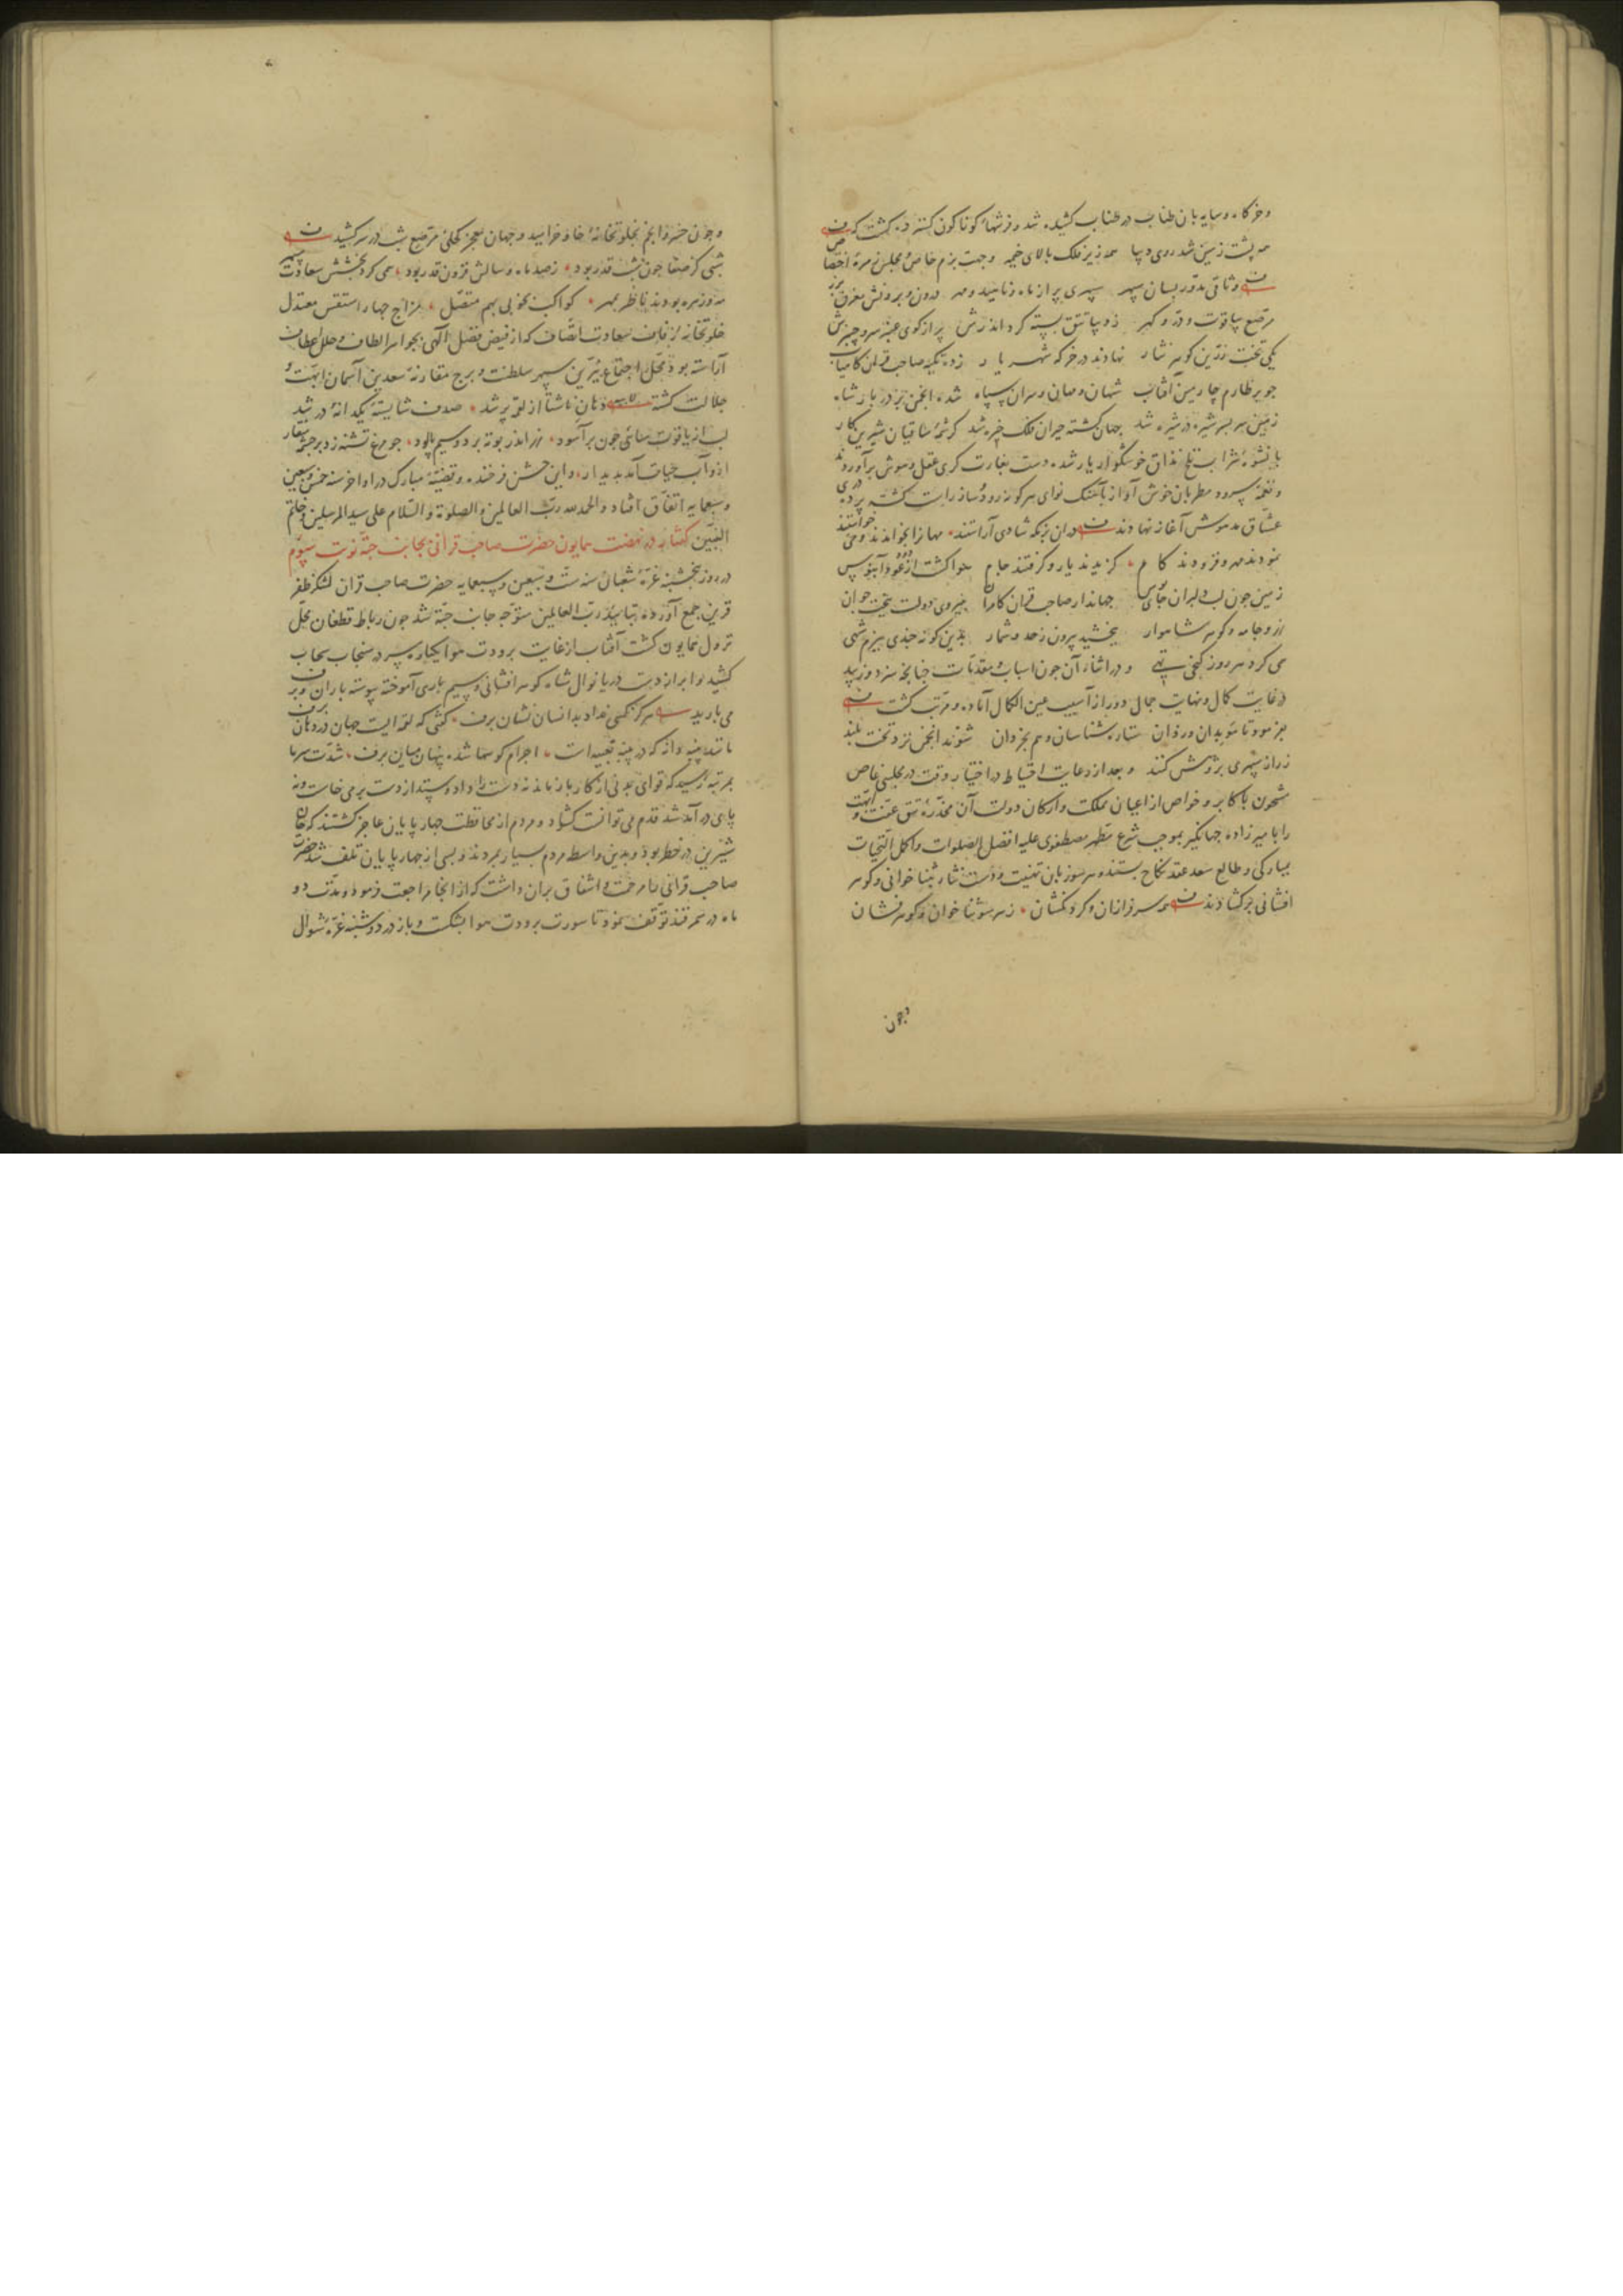 و خرگاه و سایه بان طناب در طناب کشیده شد و فرشهاء کوناکون کسترده کشت که
همه پشت زمین شد روی دیبا همه زیر فلک بالای خیمه و جهت بزم خاص و مجلس
وثاقی مدور بسان سپهر سپهری پر از ماه و ناهید و مهر درون و برونش مغرق بزر
مرصع بیاقوت و در و کهر ز دیبا تتق بسته کرد اندرش پر از کوی عنبر
یکی تخت زرین کوهر نثار نهادند در خرکه شهریار زده تکیه صاحب قران کامیاب
چو بر طارم چارمین آفتاب شهان و سران سپاه شده انجمن بر در بار شاه
زمین سر بسر شیره در شیره شد جهان کشته حیران فلک خیره شد کرشمهٔ ساقیان شیرین کار
با نشوهٔ شراب تلخ مذاق خوشکوار یار شده دست بغارت کری عقل و هوش برآوردند
و نغمه سرود مطربان خوش آواز بآهنک نوای هر کونه رود و ساز راست کشته پرده دری
عشاق مدهوش آغاز نهادند دران بزمکه شادی آراستند مهانرا بخواندند و می خواستند
نمودند مهر و فزودند کام کزیدند یار و کرفتند جام هوا کشت از عود آبنوس
زمین چون لب دلبران جای بوس جهاندار صاحب قران کامران بنیروی دولت ببخت جوان
زر و جامه و کوهر شاهوار ببخشید بیرون ز حد و شمار بدین کونه چندی ببزم شهی
می کرد هر روز کنجی تهی و در اثناء آن چون اسباب و مقدمات چنانچه سزد و زیبد
در غایت کمال و نهایت جمال دور از آسیب عین الکمال آماده و مرتب کشت
بفرمود تا موبدان و ردان ستاره شناسان و هم بخردان شوند انجمن نزد تخت بلند
ز راز سپهری پژوهش کنند و بعد از رعایت احتیاط در اختیار وقت در مجلسی خاص
مشحون باکابر و خواص از اعیان مملکت و ارکان دولت آن مخدرهٔ تتق عفت و ابهت
را بامیرزاده جهانکیر بموجب شرع مطهر مصطفوی علیه افضل الصلوات و اکمل التحیات
بمبارکی و طالع سعد عقد نکاح بستند و هر سو زبان تهنیت و دست نثار بثنا خوانی و کوهر
افشانی برکشادند همه سرفرازان و کردنکشان ز هر سو ثنا خوان و کوهر فشان
وچون
وچون خسرو انجم بخلوتخانهٔ خاور خرامید و جهان معجر کحلی مرصع شب در سر کشید
شبی کز صفا چون شب قدر بود ز صد ماه و سالش فزون قدر بود همی کرد بخشش سعادت سپهر
مه و زهره بودند ناظر بمهر کواکب بخوبی بهم متصل مزاج چهار استقس معتدل
خلوتخانهٔ زفاف سعادت اتصاف که از فیض فضل الهی بجواهر الطاف و حلل اعطاف
آراسته بود محل اجتماع نیرین سپهر سلطنت و برج مقارنهٔ سعدین آسمان ابهت و
جلالت کشته دهان از لؤلؤ پر شد صدف شایستهٔ یکدانهٔ در شد
لب از یاقوت سائی چون برآسود زر اندر بوته برد و سیم پالود چو مرغ تشنه زد بر چشمه منقار
ازو آب حیات آمد پدیدار و این جشن فرخنده و قضیهٔ مبارک در اواخر سنه خمس و سبعین
و سبعمایه اتفاق افتاد و الحمد لله رب العالمین و الصلوة و السلام علی سید المرسلین و خاتم
النبیین کفتار در نهضت همایون حضرت صاحب قرانی بجانب جته نوبت سیوم
در روز پنجشنبه غرهٔ شعبان سنه ست و سبعین و سبعمایه حضرت صاحب قران لشکر ظفر
قرین جمع آورده بتایید رب العالمین متوجه جانب جته شد چون رباط قطغان محل
نزول همایون کشت آفتاب از غایت برودت هوا یکباره سر در سنجاب سحاب
کشید و ابر از دست دریا نوال شاه کوهر افشانی و سیم باری آموخته پیوسته باران و برف
می بارید هرکز کسی نداد بدانسان نشان برف کفتی که لقمه ایست جهان در دهان برف
مانند پنبه دانه که در پنبه تعبیه است اجرام کوهها شده پنهان میان برف شدت سرما
بمرتبهٔ رسید که قوای بدنی از کار باز ماند نه دست را داد و ستد از دست بر می خاست و نه
پای در آمد شد قدم می توانست کشاد و مردم از محافظت چهارپایان عاجز کشتند که جان
شیرین در خطر بود و بدین واسطه مردم بسیار بمردند و بسی از چهارپایان تلف شد حضرت
صاحب قرانی را مرحمت و اشفاق بران داشت که از آنجا مراجعت فرموده مدت دو
ماه در سمرقند توقف نمود تا سورت برودت هوا بشکست و باز در دوشنبه غرهٔ شوال